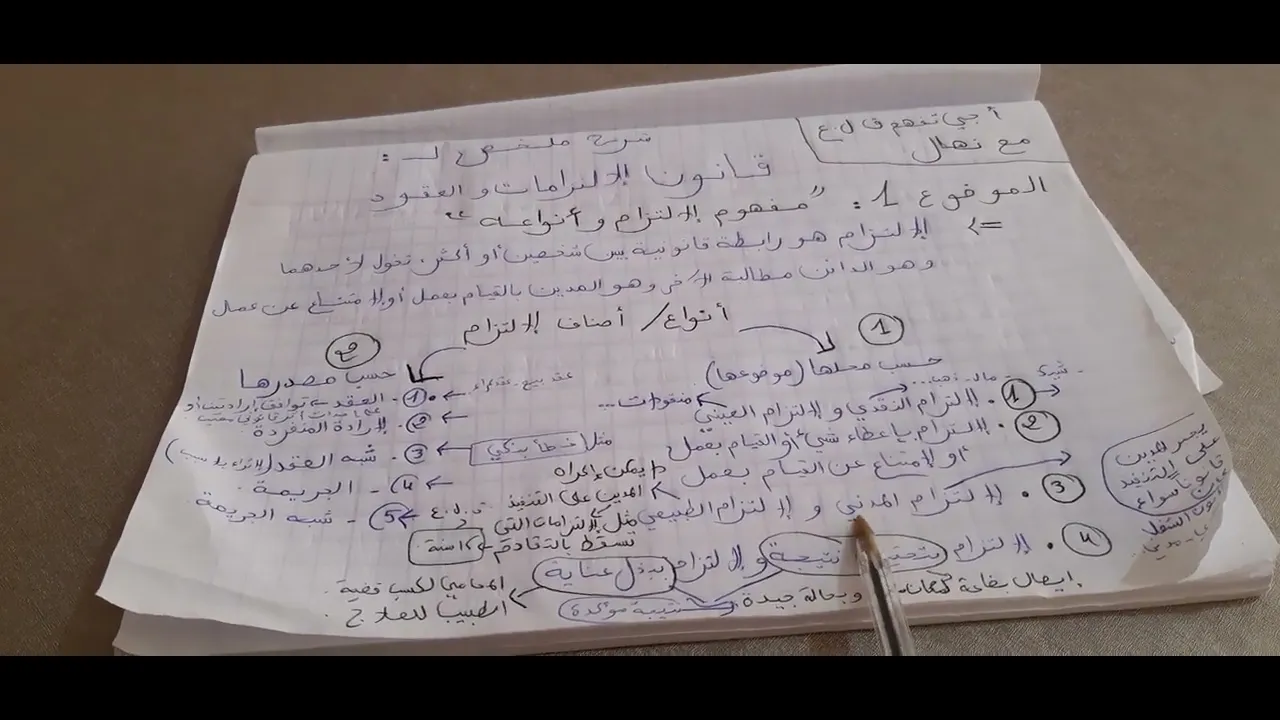 أجي تفهم ق ل.ع
مع نهال
شرح ملخص لـ :
قانون الالتزامات و العقود
الموضوع 1: "مفهوم الالتزام و أنواعه"
=> الالتزام هو رابطة قانونية بين شخصين أو أكثر، تخول لأحدهما
وهو الدائن مطالبة الآخر وهو المدين بالقيام بعمل أو الامتناع عن عمل
أنواع/ أصناف الالتزام
1
حسب محلها (موضوعها)
- شيء
مال - ذهب...
1. الالتزام النقدي و الالتزام العيني
منقولات...
2. الالتزام بإعطاء شيء أو القيام بعمل
أو الامتناع عن القيام بعمل
3. الالتزام المدني و الالتزام الطبيعي
يجبر المدين
على التنفيذ
قانونا سواء
يمكن إجراه
المدين على التنفيذ
مثل الالتزامات التي
تسقط بالتقادم
15 سنة
ق.ل.ع
4. الالتزام بتحقيق نتيجة و الالتزام ببذل عناية
إيصال بضاعة وبحالة جيدة
نتيجة مؤكدة
المحامي لكسب قضية.
الطبيب للعلاج.
2
حسب مصدرها
عقد بيع - عقد كراء
1. - العقد توافق إرادتين أو
2. - الإرادة المنفردة
3 - شبه العقد (الإثراء بلا سبب)
مثل خطأ بنكي
4 - الجريمة
5 - شبه الجريمة